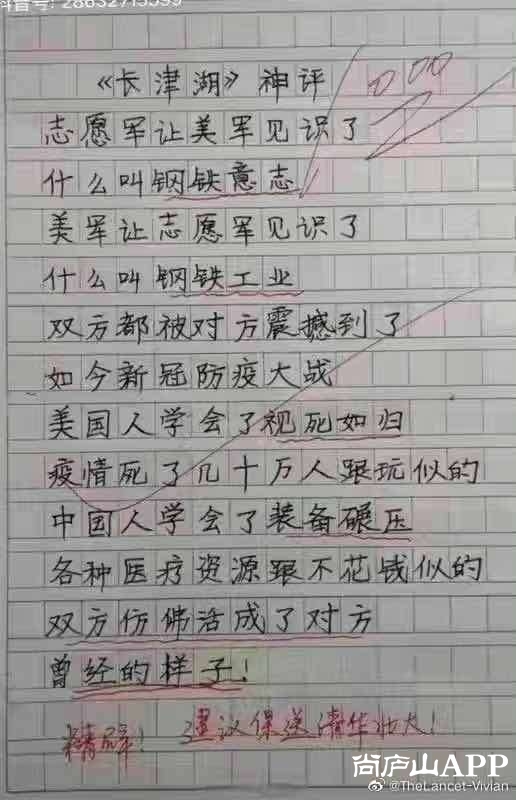 抖音号: 28632715599
《长津湖》神评
志愿军让美军见识了
什么叫钢铁意志
美军让志愿军见识了
什么叫钢铁工业
双方都被对方震撼到了
如今新冠防疫大战
美国人学会了视死如归
疫情死了几十万人跟玩似的
中国人学会了装备碾压
各种医疗资源跟不花钱似的
双方仿佛活成了对方
曾经的样子!
精辟! 建议保送清华北大!
尚庐山APP
@TheLancet-Vivian